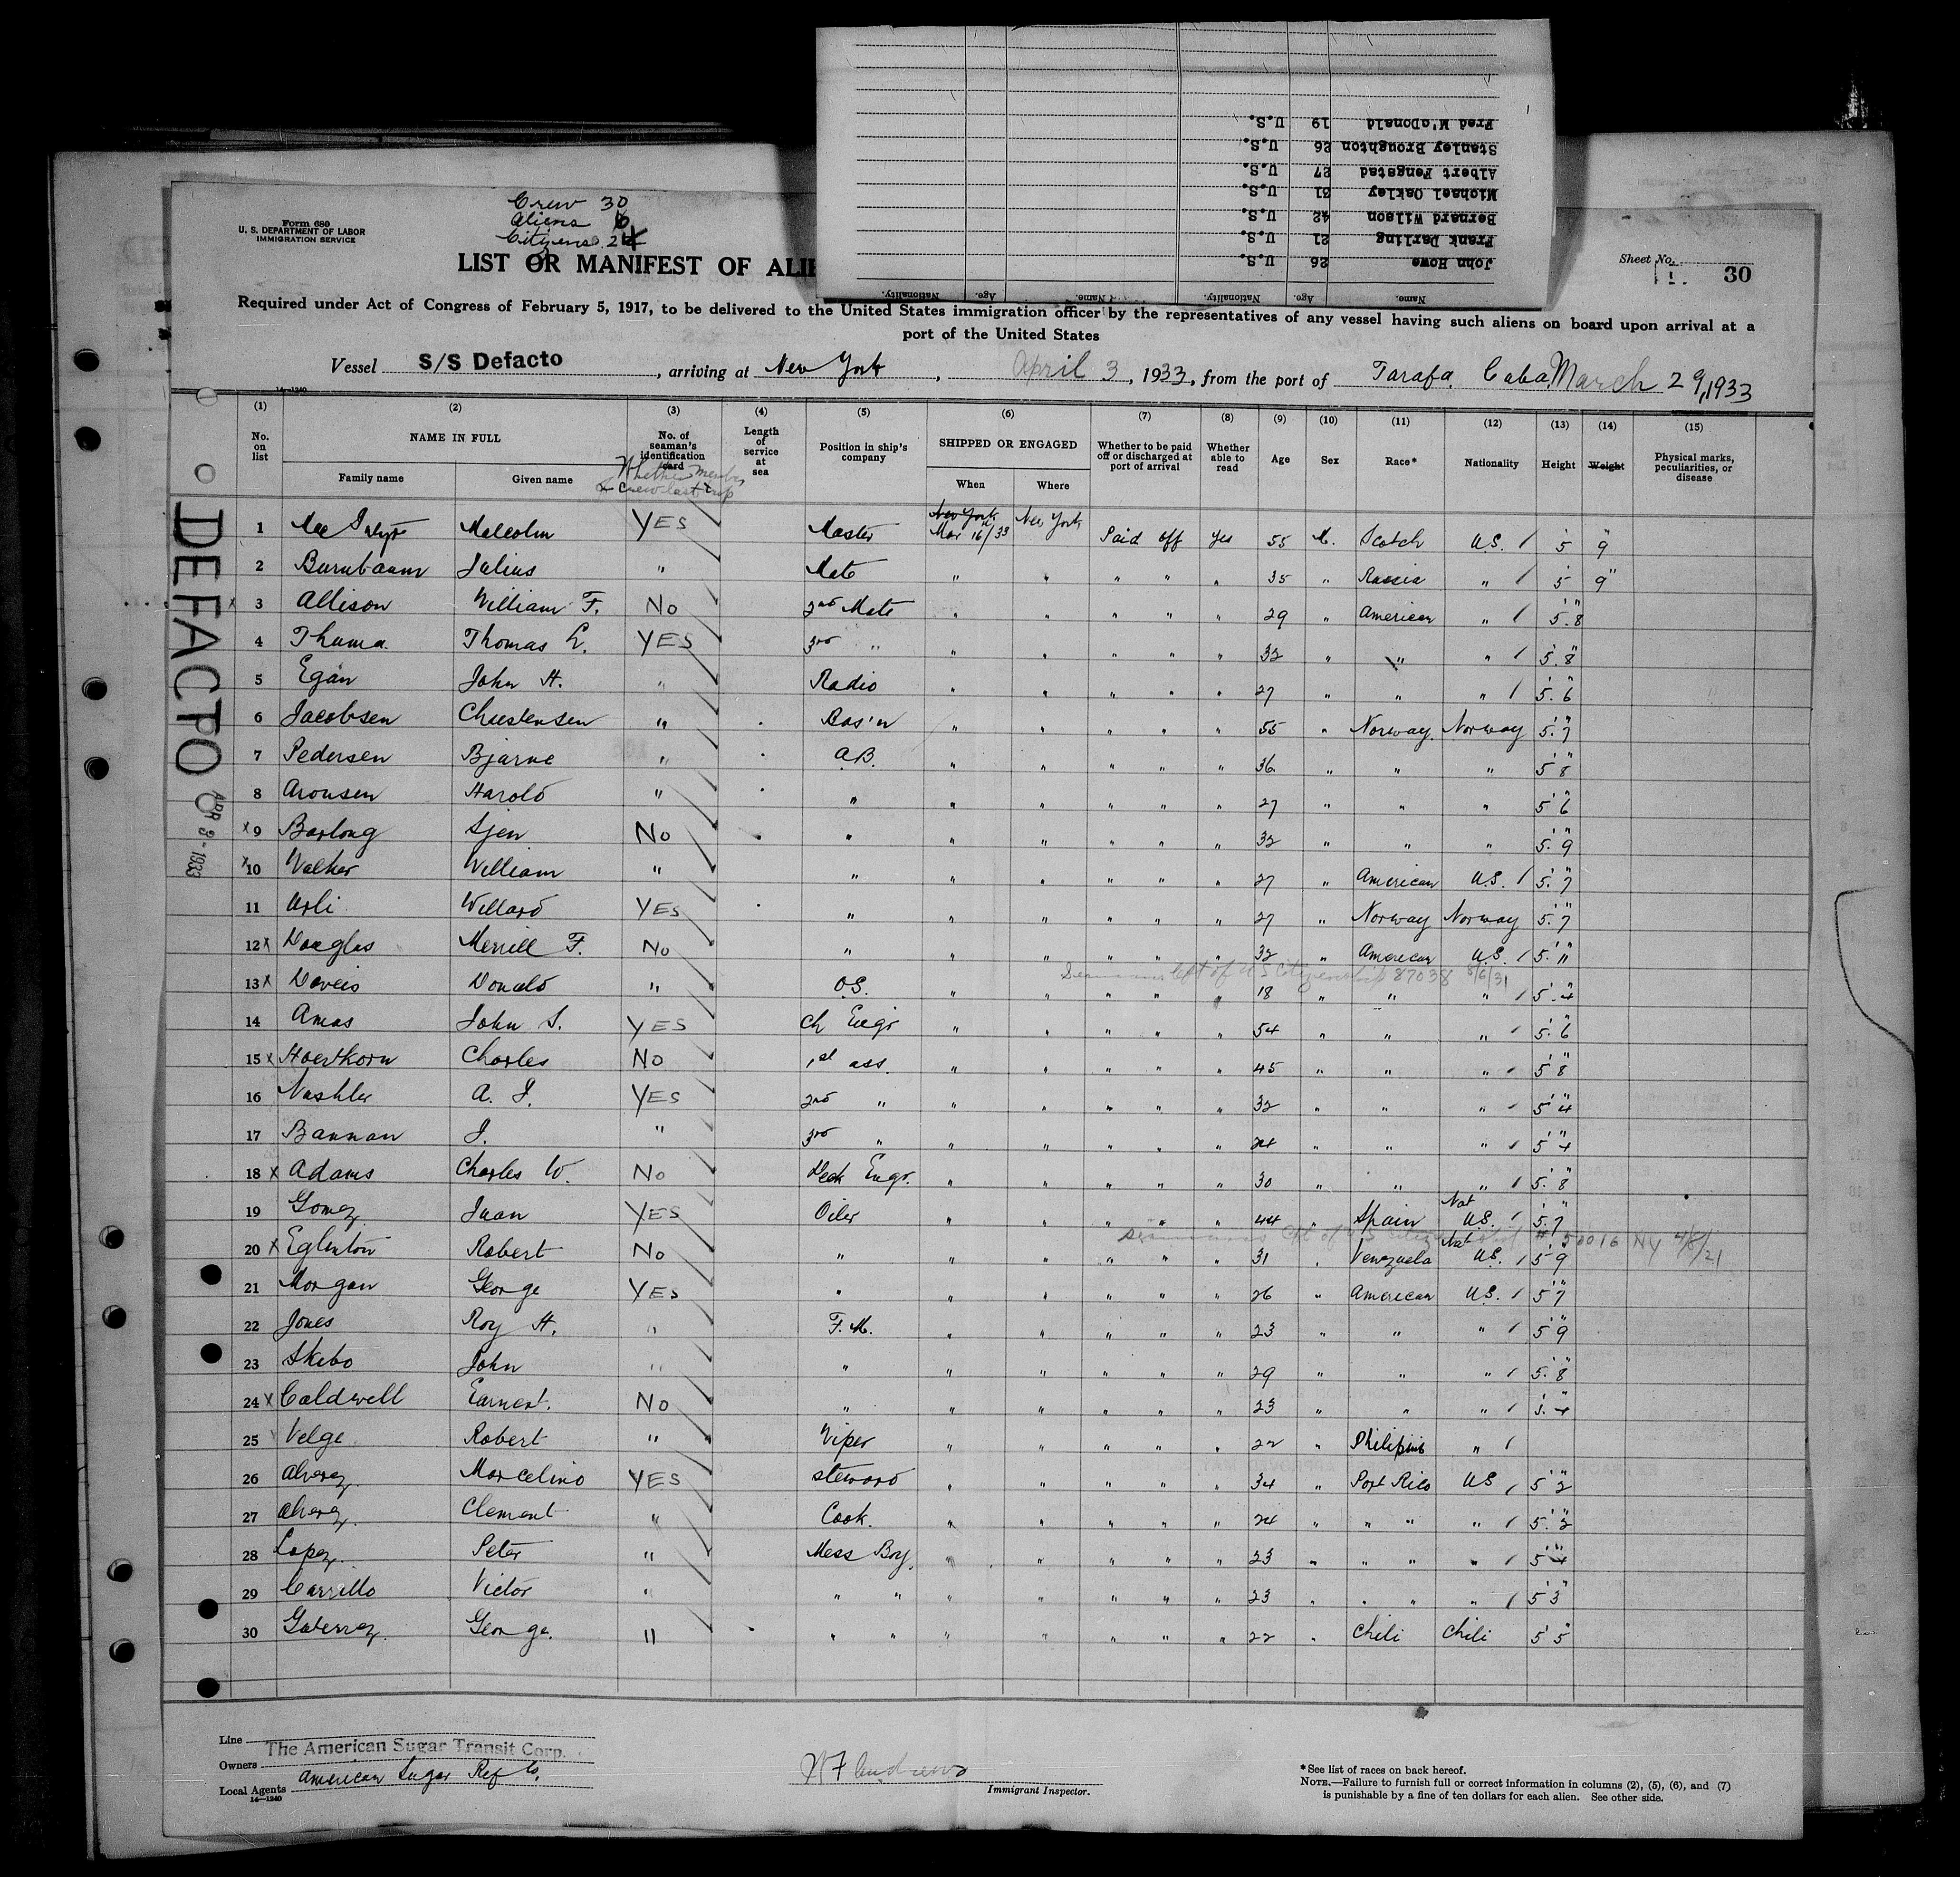 Fred McDonald 19 U.S.
Stanley Broughton 26 U.S.
Albert Fengstad 27 U.S.
Michael Oakley 31 U.S.
Bernard Wilson 42 U.S.
Frank Darling 21 U.S.
John Howe 26 U.S.
Name. Age. Nationality. Name. Age. Nationality.
Crew 30
Aliens 6
Citizens 24
Form 680
U. S. DEPARTMENT OF LABOR
IMMIGRATION SERVICE
LIST OR MANIFEST OF ALIE
Sheet No. 1 30
Required under Act of Congress of February 5, 1917, to be delivered to the United States immigration officer by the representatives of any vessel having such aliens on board upon arrival at a
port of the United States
Vessel S/S Defacto, arriving at New York, April 3, 1933, from the port of Tarafa Cuba March 29, 1933
14—1240
(1) (2) (3) (4) (5) (6) (7) (8) (9) (10) (11) (12) (13) (14) (15)
No. on list NAME IN FULL No. of seaman's identification card Length of service at sea Position in ship's company SHIPPED OR ENGAGED Whether to be paid off or discharged at port of arrival Whether able to read Age Sex Race* Nationality Height Weight Physical marks, peculiarities, or disease
Family name Given name When Where
Whether member of crew last trip
DEFACTO
APR 3-1933
1 Malcolm YES Master New York Mar 16/33 New York Paid off yes 55 M. Scotch U.S. 5 9"
2 Burnbaum Julius " Mate " " " " " 35 " Russia " 5 9"
x 3 Allison William F. No 2nd Mate " " " " " 29 " American " 5'.8"
4 Thuma Thomas L. YES 3rd " " " " " " 32 " " " 5'.8"
5 Egan John H. " Radio " " " " " 27 " " " 5'.6"
6 Jacobsen Christensen " Bos'n " " " " " 55 " Norway Norway 5'.7"
7 Pedersen Bjarne " A.B. " " " " " 36 " " " 5'8"
8 Aronsen Harold " " " " " " " 27 " " " 5'6"
x 9 No " " " " " " 32 " " " 5'.9"
x 10 Walker William " " " " " " " 27 " American U.S. 5'.7"
11 Urli Willard YES " " " " " " 27 " Norway Norway 5'.7"
12 x Douglas Merrill F. No " " " " " " 32 " American U.S. 5'.11"
Seamans Cpt of U S Citizenship 87038 5/6/31
13 x Daveis Donald " O.S. " " " " " 18 " " " 5'.4"
14 Amas John S. YES Ch Engr " " " " " 54 " " " 5'.6"
15 x Hoertkorn Charles No 1st ass. " " " " " 45 " " " 5'8"
16 Nashler A. J. YES 2nd " " " " " " 32 " " " 5'4"
17 Bannan J. " 3rd " " " " " " 24 " " " 5'4"
18 x Adams Charles W. No Deck Engr. " " " " " 30 " " " 5'.8"
19 Gomez Juan YES Oiler " " " " " 44 " Spain Nat U.S. 5'.7"
Seamans Cpt of U S # 50016 NY 4/8/21
20 x Eglinton Robert No " " " " " " 31 " Venezuela Nat U.S. 5'9"
21 Morgan George YES " " " " " " 26 " American U.S. 5'7"
22 Jones Roy H. " F.M. " " " " " 23 " " " 5'9"
23 Skebo John " " " " " " " 29 " " " 5'.8"
24 x Caldwell Earnest. No " " " " " " 23 " " " 5'.4"
25 Velge Robert " Wiper " " " " " 22 " Philipins "
26 Alverez Marcelino YES Steward " " " " " 34 " Port Rico US 5'2"
27 Alverez Clement " Cook. " " " " " 24 " " " " 5'.2"
28 Lopez Peter " Mess Boy. " " " " " 23 " " " " 5'4"
29 Carrillo Victor " " " " " " " " 23 " " " " 5'3"
30 Guterrez George. " " " " " " " " 22 " Chili Chili 5'5"
Line The American Sugar Transit Corp.
Owners
Local Agents American Sugar Ref Co.
14—1240
Immigrant Inspector.
* See list of races on back hereof.
NOTE.—Failure to furnish full or correct information in columns (2), (5), (6), and (7)
is punishable by a fine of ten dollars for each alien. See other side.